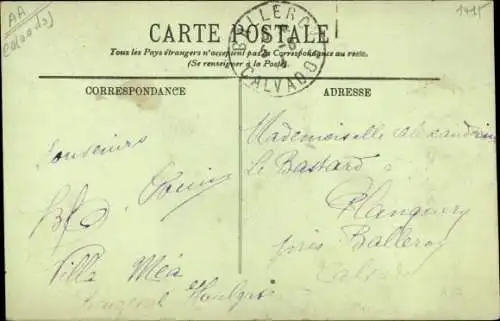 AA
Calvados
1415
CARTE POSTALE
Tous les Pays étrangers n'acceptent pas la Correspondance au recto.
(Se renseigner à la Poste).
BALLEROY
CALVADOS
CORRESPONDANCE
ADRESSE
Souvenirs
Louise
Villa Méa
Houlgate
Mademoiselle Alexandrine
Le Bastard
Planquery
près Balleroy
Calvados